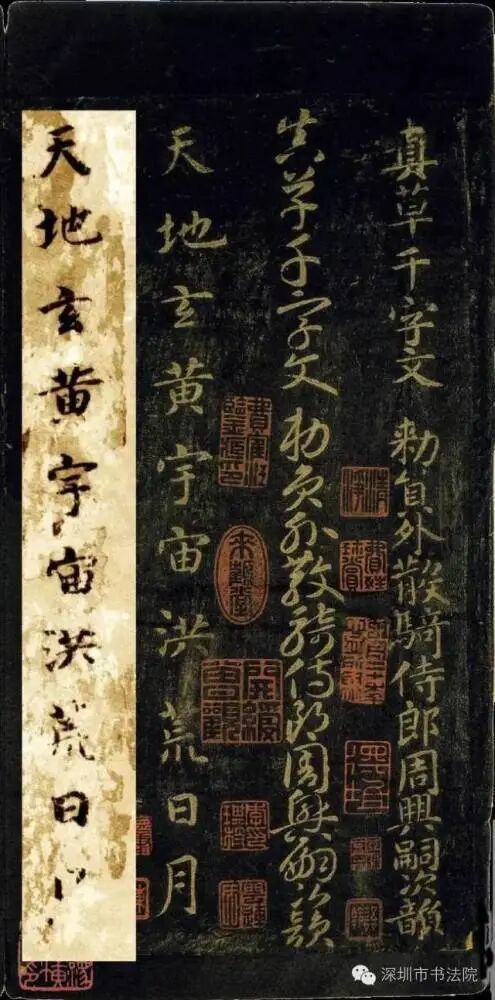 真草千字文 勅員外散騎侍郎周興嗣次韻
真草千字文 勅員外散騎侍郎周興嗣次韻
天地玄黄宇宙洪荒日月
天地玄黄宇宙洪荒日
深圳市书法院